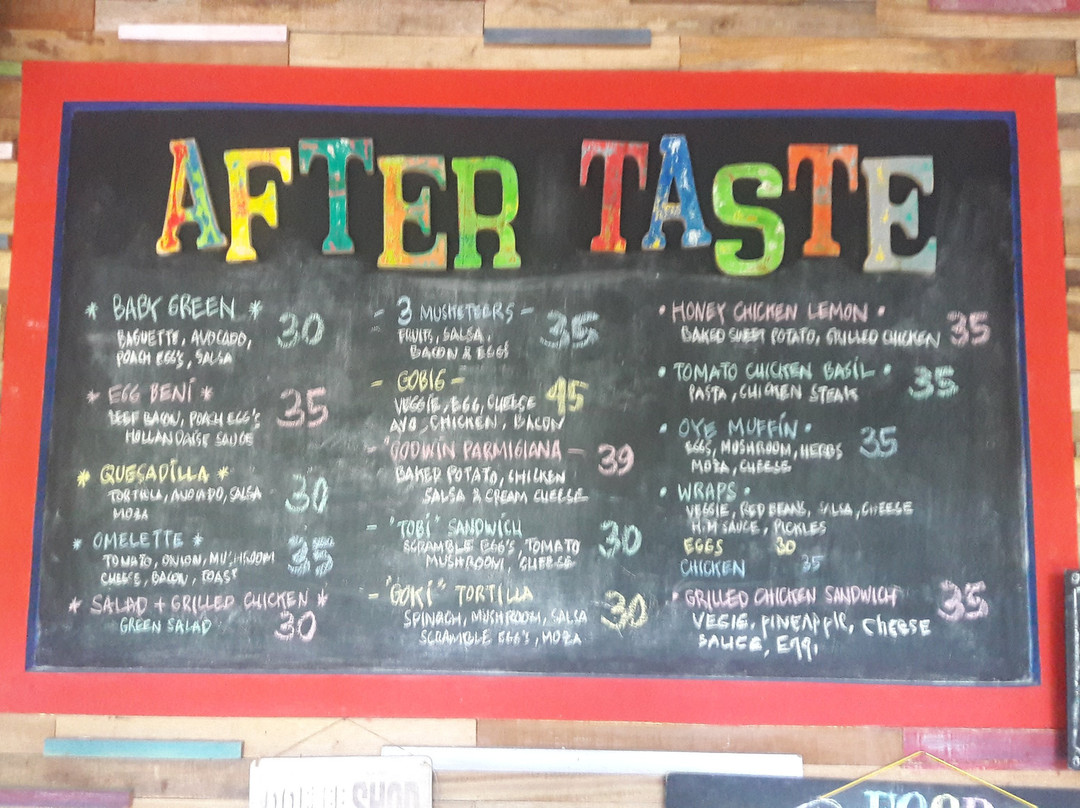 AFTER TASTE
* BABY GREEN * 30
BAGUETTE, AVOCADO,
POACH EGG'S, SALSA
* EGG BENI * 35
BEEF BACON, POACH EGG'S
HOLLANDAISE SAUCE
* QUESADILLA * 30
TORTILLA, AVOCADO, SALSA
MOZA
* OMELETTE * 35
TOMATO, ONION, MUSHROOM
CHEESE, BACON, TOAST
* SALAD + GRILLED CHICKEN * 30
GREEN SALAD
- 3 MUSKETEERS - 35
FRUITS, SALSA,
BACON & EGGS
- GOBIG - 45
VEGGIE, EGG, CHEESE
AVO, CHICKEN, BACON
- GODWIN PARMIGIANA - 39
BAKED POTATO, CHICKEN
SALSA & CREAM CHEESE
- "TOBI" SANDWICH 30
SCRAMBLE EGG'S, TOMATO
MUSHROOM, CHEESE
- "GOKI" TORTILLA 30
SPINACH, MUSHROOM, SALSA
SCRAMBLE EGG'S, MOZA
• HONEY CHICKEN LEMON • 35
BAKED SWEET POTATO, GRILLED CHICKEN
• TOMATO CHICKEN BASIL • 35
PASTA, CHICKEN STEAK
• OYE MUFFIN • 35
EGGS, MUSHROOM, HERBS
MOZA, CHEESE
• WRAPS •
VEGGIE, RED BEANS, SALSA, CHEESE
H.M SAUCE, PICKLES
EGGS 30
CHICKEN 35
• GRILLED CHICKEN SANDWICH 35
VEGIE, PINEAPPLE, CHEESE
SAUCE, EGG,
SHOP
FOOD